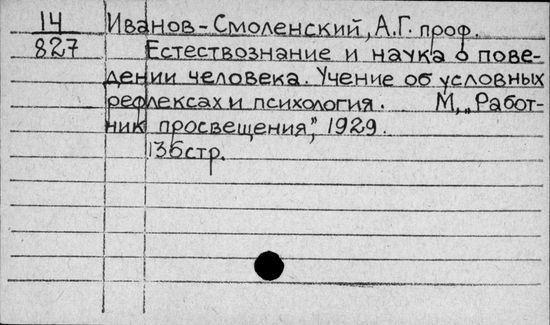 14 Иванов-Смоленский, А.Г. проф.
827 Естествознание и наука о пове-
дении человека. Учение об условных
рефлексах и психология. М., „Работ-
ник просвещения", 1929.
136стр.